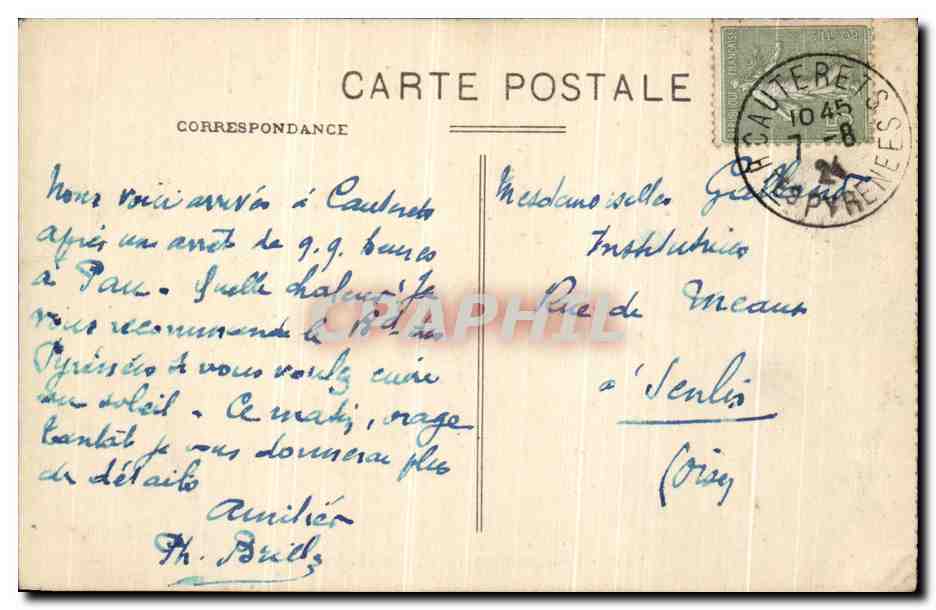 CARTE POSTALE
CORRESPONDANCE
Nous voici arrivés à Cauterets
après un arrêt de q.q. heures
à Pau - Quelle chaleur! Je
vous recommande le Bd des
Pyrénées si vous voulez cuire
au soleil - Ce matin, orage
tantôt je vous donnerai plus
de détails
Amitiés
Ph.
Mesdemoiselles
Institutrices
Rue de Meaux
à Senlis
(Oise)
CAUTERETS
10 45
7 -8
24
PYRENEES
CPAPHIL